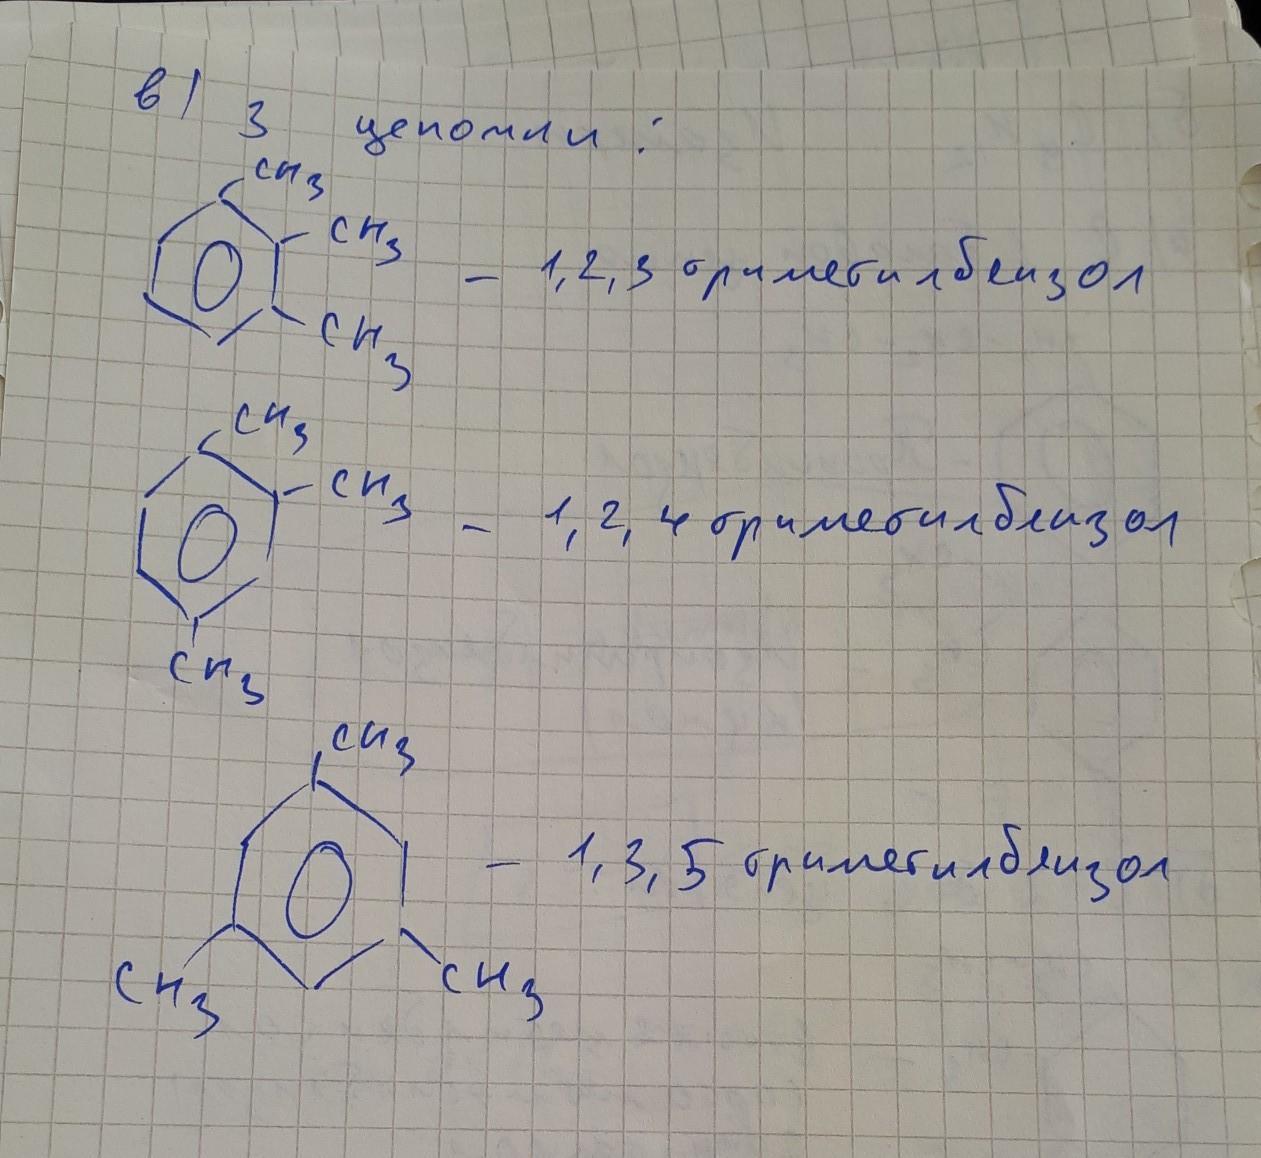 в) 3 цепочки:
CH3
CH3
CH3
- 1,2,3 триметилбензол
CH3
CH3
- 1,2,4 триметилбензол
CH3
CH3
- 1,3,5 триметилбензол
CH3
CH3